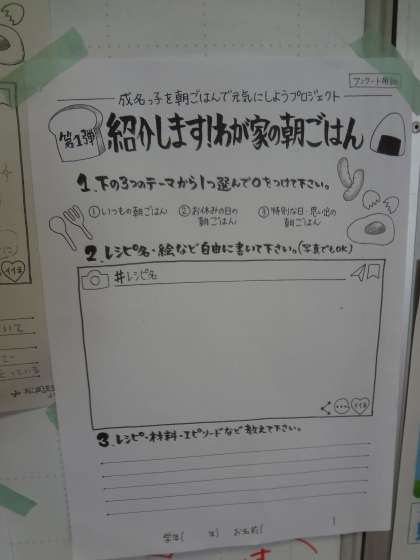 アンケート用紙
成名っ子を朝ごはんで元気にしようプロジェクト
第1弾
紹介します!わが家の朝ごはん
1.下の3つのテーマから1つ選んで○をつけて下さい。
①いつもの朝ごはん ②お休みの日の朝ごはん ③特別な日・思い出の朝ごはん
2.レシピ名・絵など自由に書いて下さい。(写真でもOK)
#レシピ名
イイネ
3.レシピ・材料・エピソードなど教えて下さい。
学年( 年) お名前(
イイネ